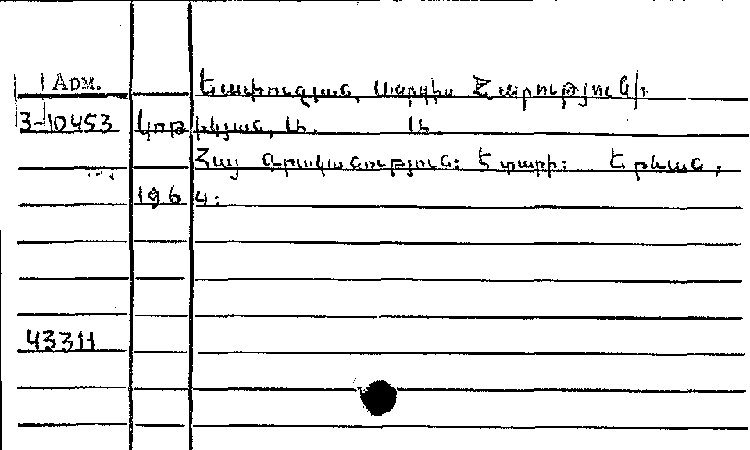 ADM.
Եափուջյան, Սարգիս Հարությունի
3-10453 Կոթիկյան, Ա. Ա.
Հայ գրականություն: 5 տարի: Երևան,
1964:
43311